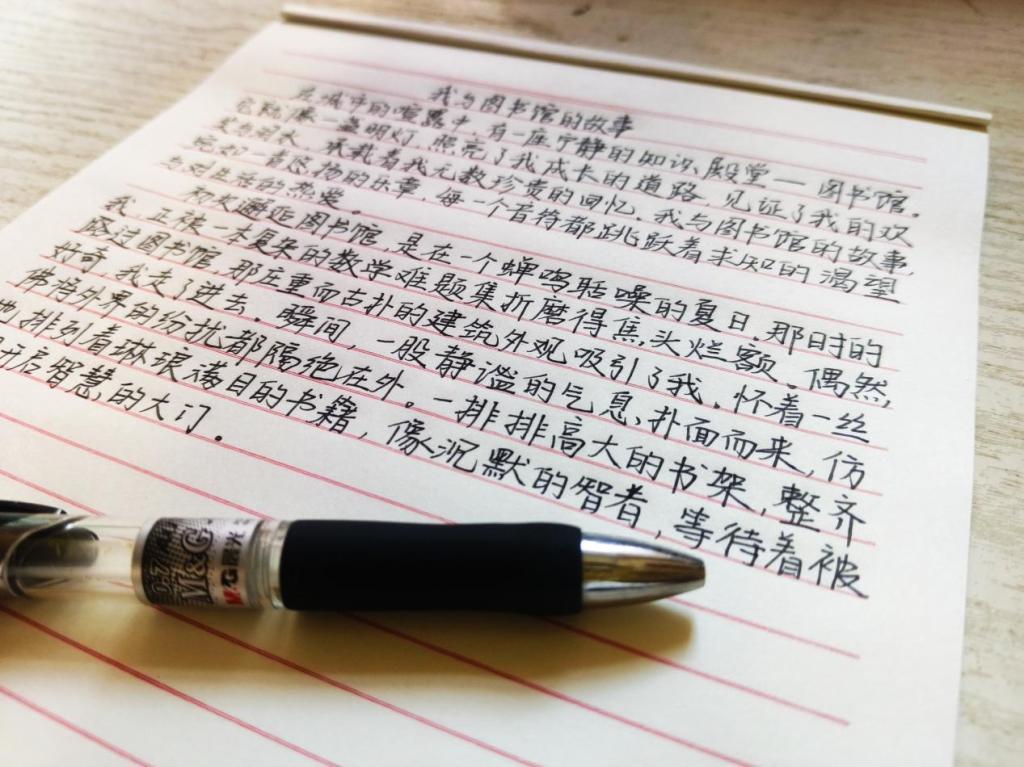 我与图书馆的故事
在城市的喧嚣中，有一座宁静的知识殿堂——图书馆。
它就像一盏明灯，照亮了我成长的道路，见证了我的欢
笑与泪水，承载着我无数珍贵的回忆。我与图书馆的故事，
宛如一首悠扬的乐章，每一个音符都跳跃着求知的渴望
与对生活的热爱。
初次邂逅图书馆，是在一个蝉鸣聒噪的夏日，那时的
我，正被一本复杂的数学难题集折磨得焦头烂额。偶然，
路过图书馆，那庄重而古朴的建筑外观吸引了我，怀着一丝
好奇，我走了进去。瞬间，一股静谧的气息扑面而来，仿
佛将外界的纷扰都隔绝在外。一排排高大的书架，整齐
地排列着琳琅满目的书籍，像沉默的智者，等待着被
开启智慧的大门。
0.7
M&G
M&G 晨光